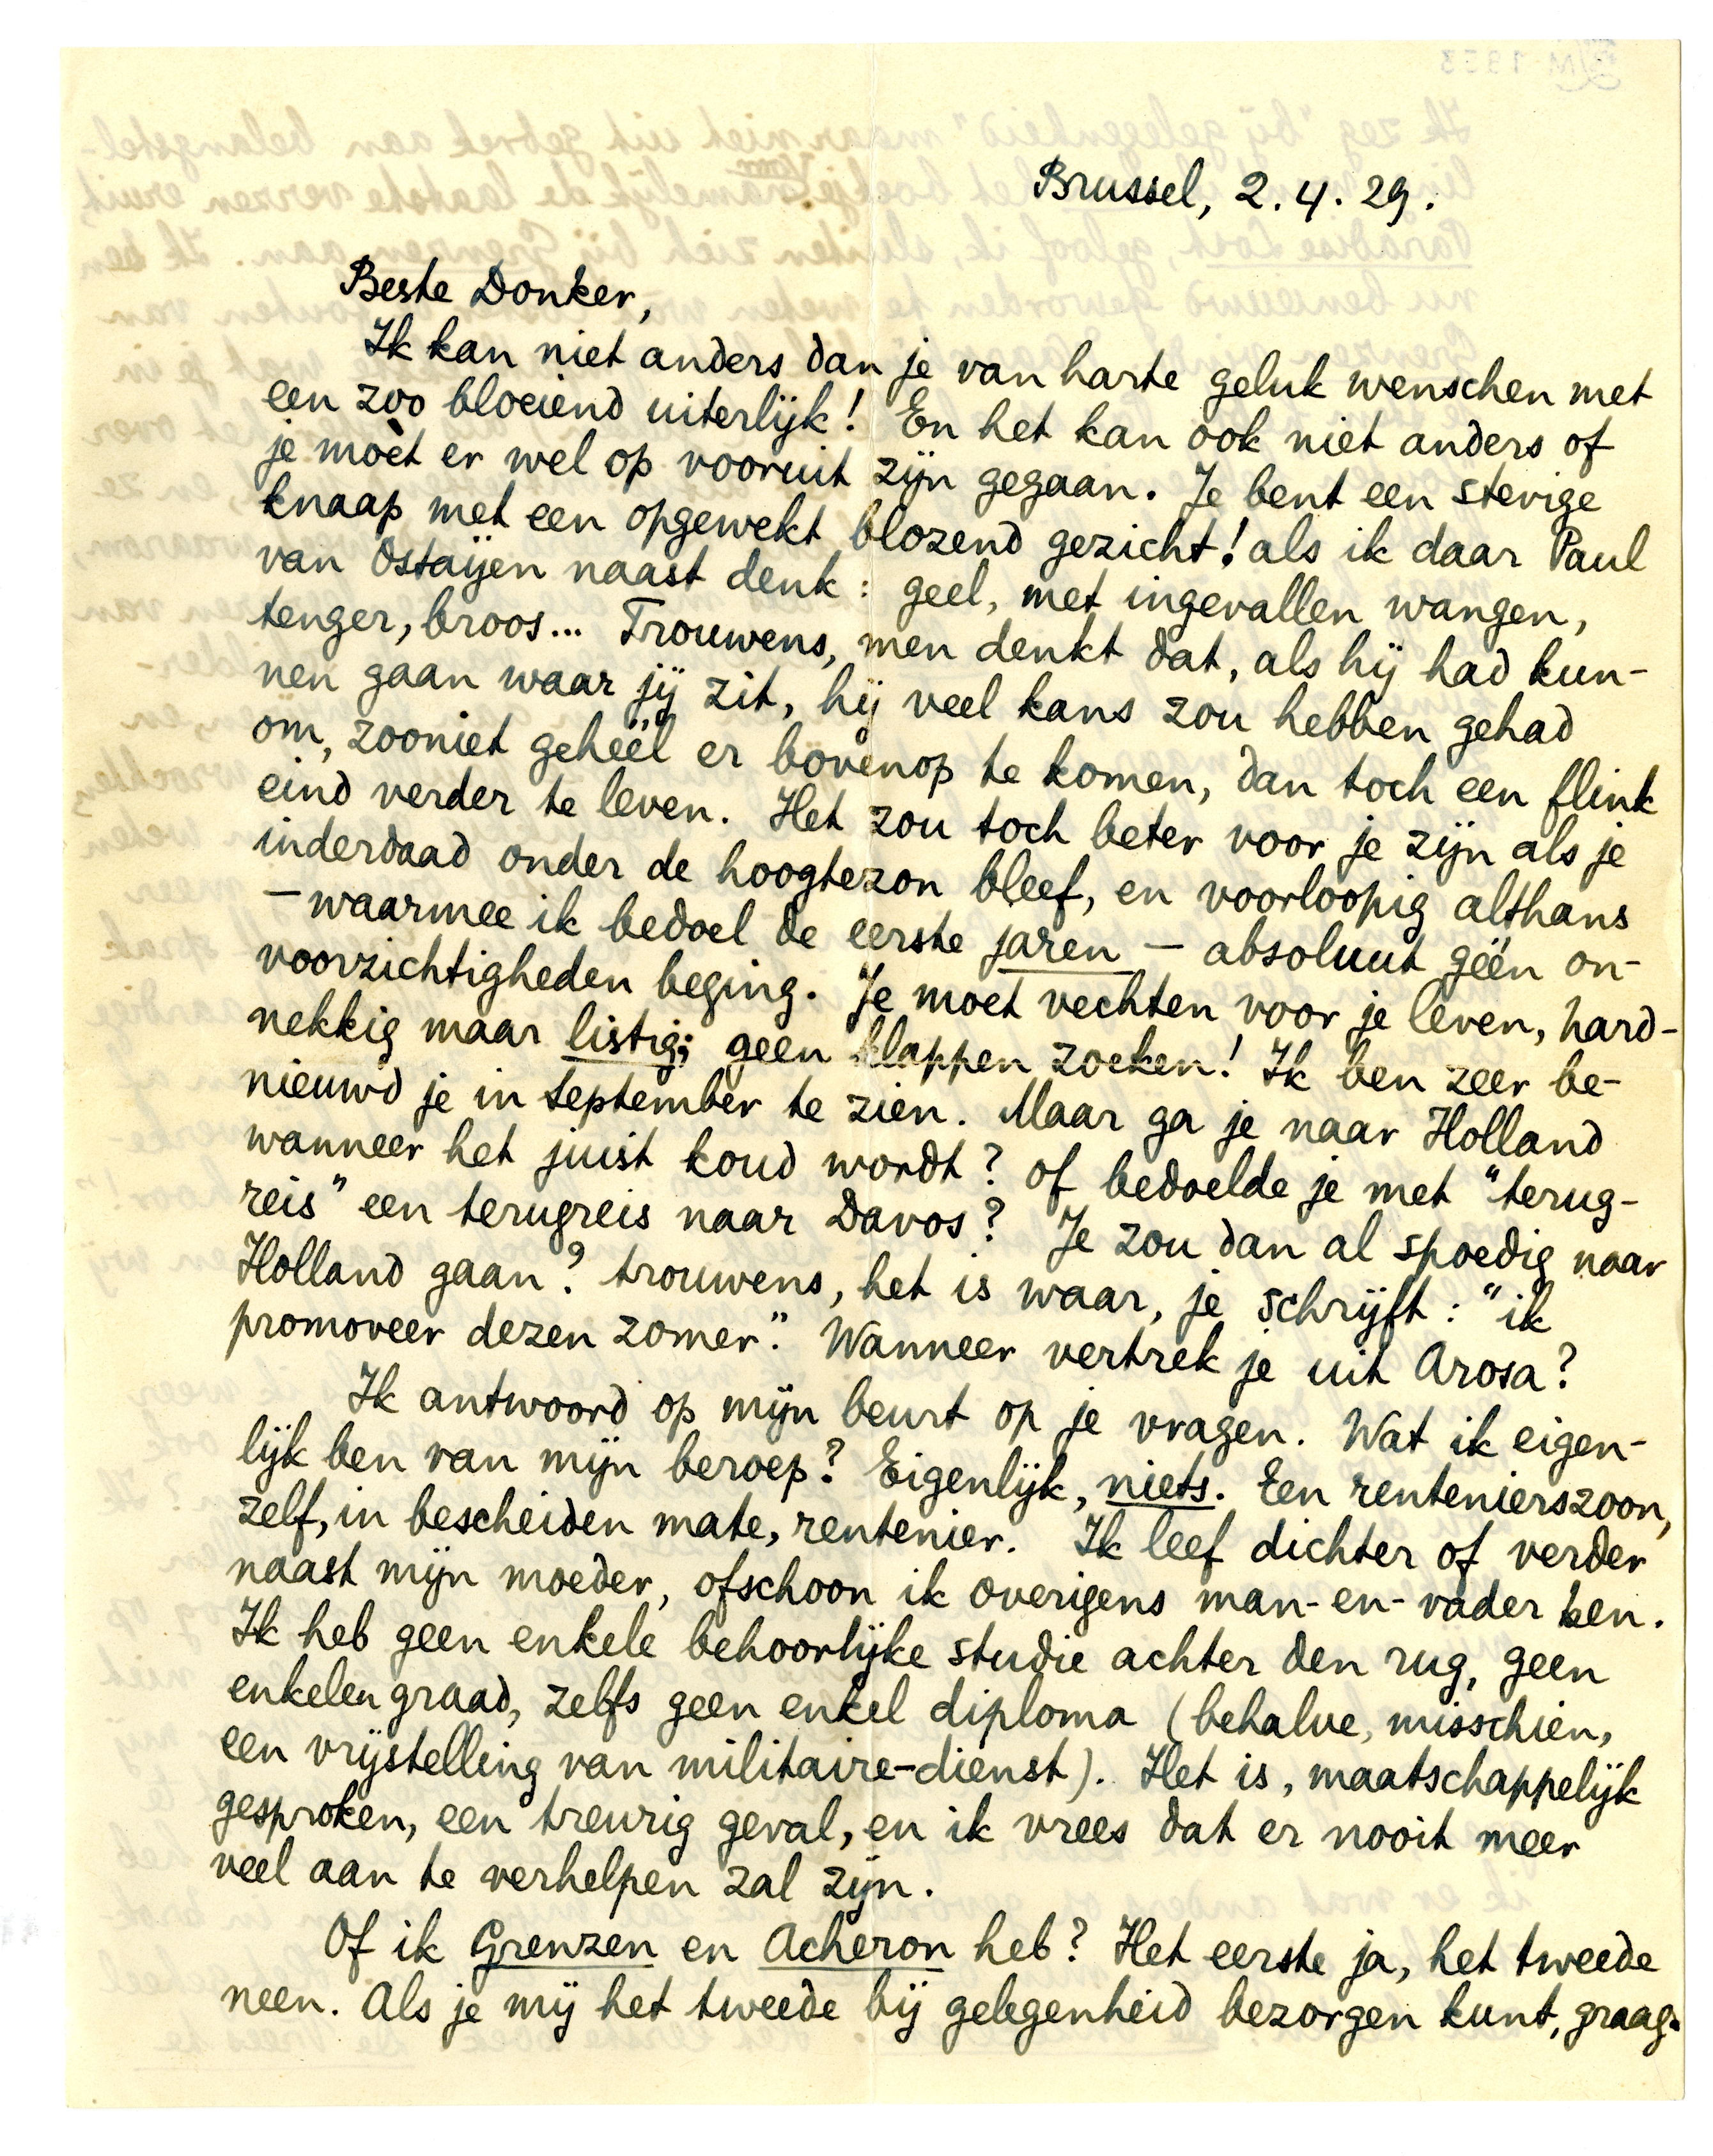 Brussel, 2.4.29.
Beste Donker,
Ik kan niet anders dan je van harte geluk wenschen met
een zoo bloeiend uiterlijk! En het kan ook niet anders of
je moèt er wel op vooruit zijn gegaan. Je bent een stevige
knaap met een opgewekt blozend gezicht! als ik daar Paul
van Ostaijen naast denk: geel, met ingevallen wangen,
tenger, broos... Trouwens, men denkt dat, als hij had kun-
nen gaan waar jij zit, hij veel kans zou hebben gehad
om, zooniet geheel er bovenop te komen, dan toch een flink
eind verder te leven. Het zou toch beter voor je zijn als je
inderdaad onder de hoogtezon bleef, en voorloopig althans
— waarmee ik bedoel de eerste jaren — absoluut géén on-
voorzichtigheden beging. Je moet vechten voor je leven, hard-
nekkig maar listig; geen klappen zoeken! Ik ben zeer be-
nieuwd je in September te zien. Maar ga je naar Holland
wanneer het juist koud wordt? of bedoelde je met "terug-
reis" een terugreis naar Davos? Je zou dan al spoedig naar
Holland gaan? trouwens, het is waar, je schrijft: "ik
promoveer dezen zomer." Wanneer vertrek je uit Arosa?
Ik antwoord op mijn beurt op je vragen. Wat ik eigen-
lijk ben van mijn beroep? Eigenlijk, niets. Een rentenierszoon,
zelf, in bescheiden mate, rentenier. Ik leef dichter of verder
naast mijn moeder, ofschoon ik overigens man-en-vader ben.
Ik heb geen enkele behoorlijke studie achter den rug, geen
enkelen graad, zelfs geen enkel diploma (behalve, misschien,
een vrijstelling van militaire-dienst). Het is, maatschappelijk
gesproken, een treurig geval, en ik vrees dat er nooit meer
veel aan te verhelpen zal zijn.
Of ik Grenzen en Acheron heb? Het eerste ja, het tweede
neen. Als je mij het tweede bij gelegenheid bezorgen kunt, graag.